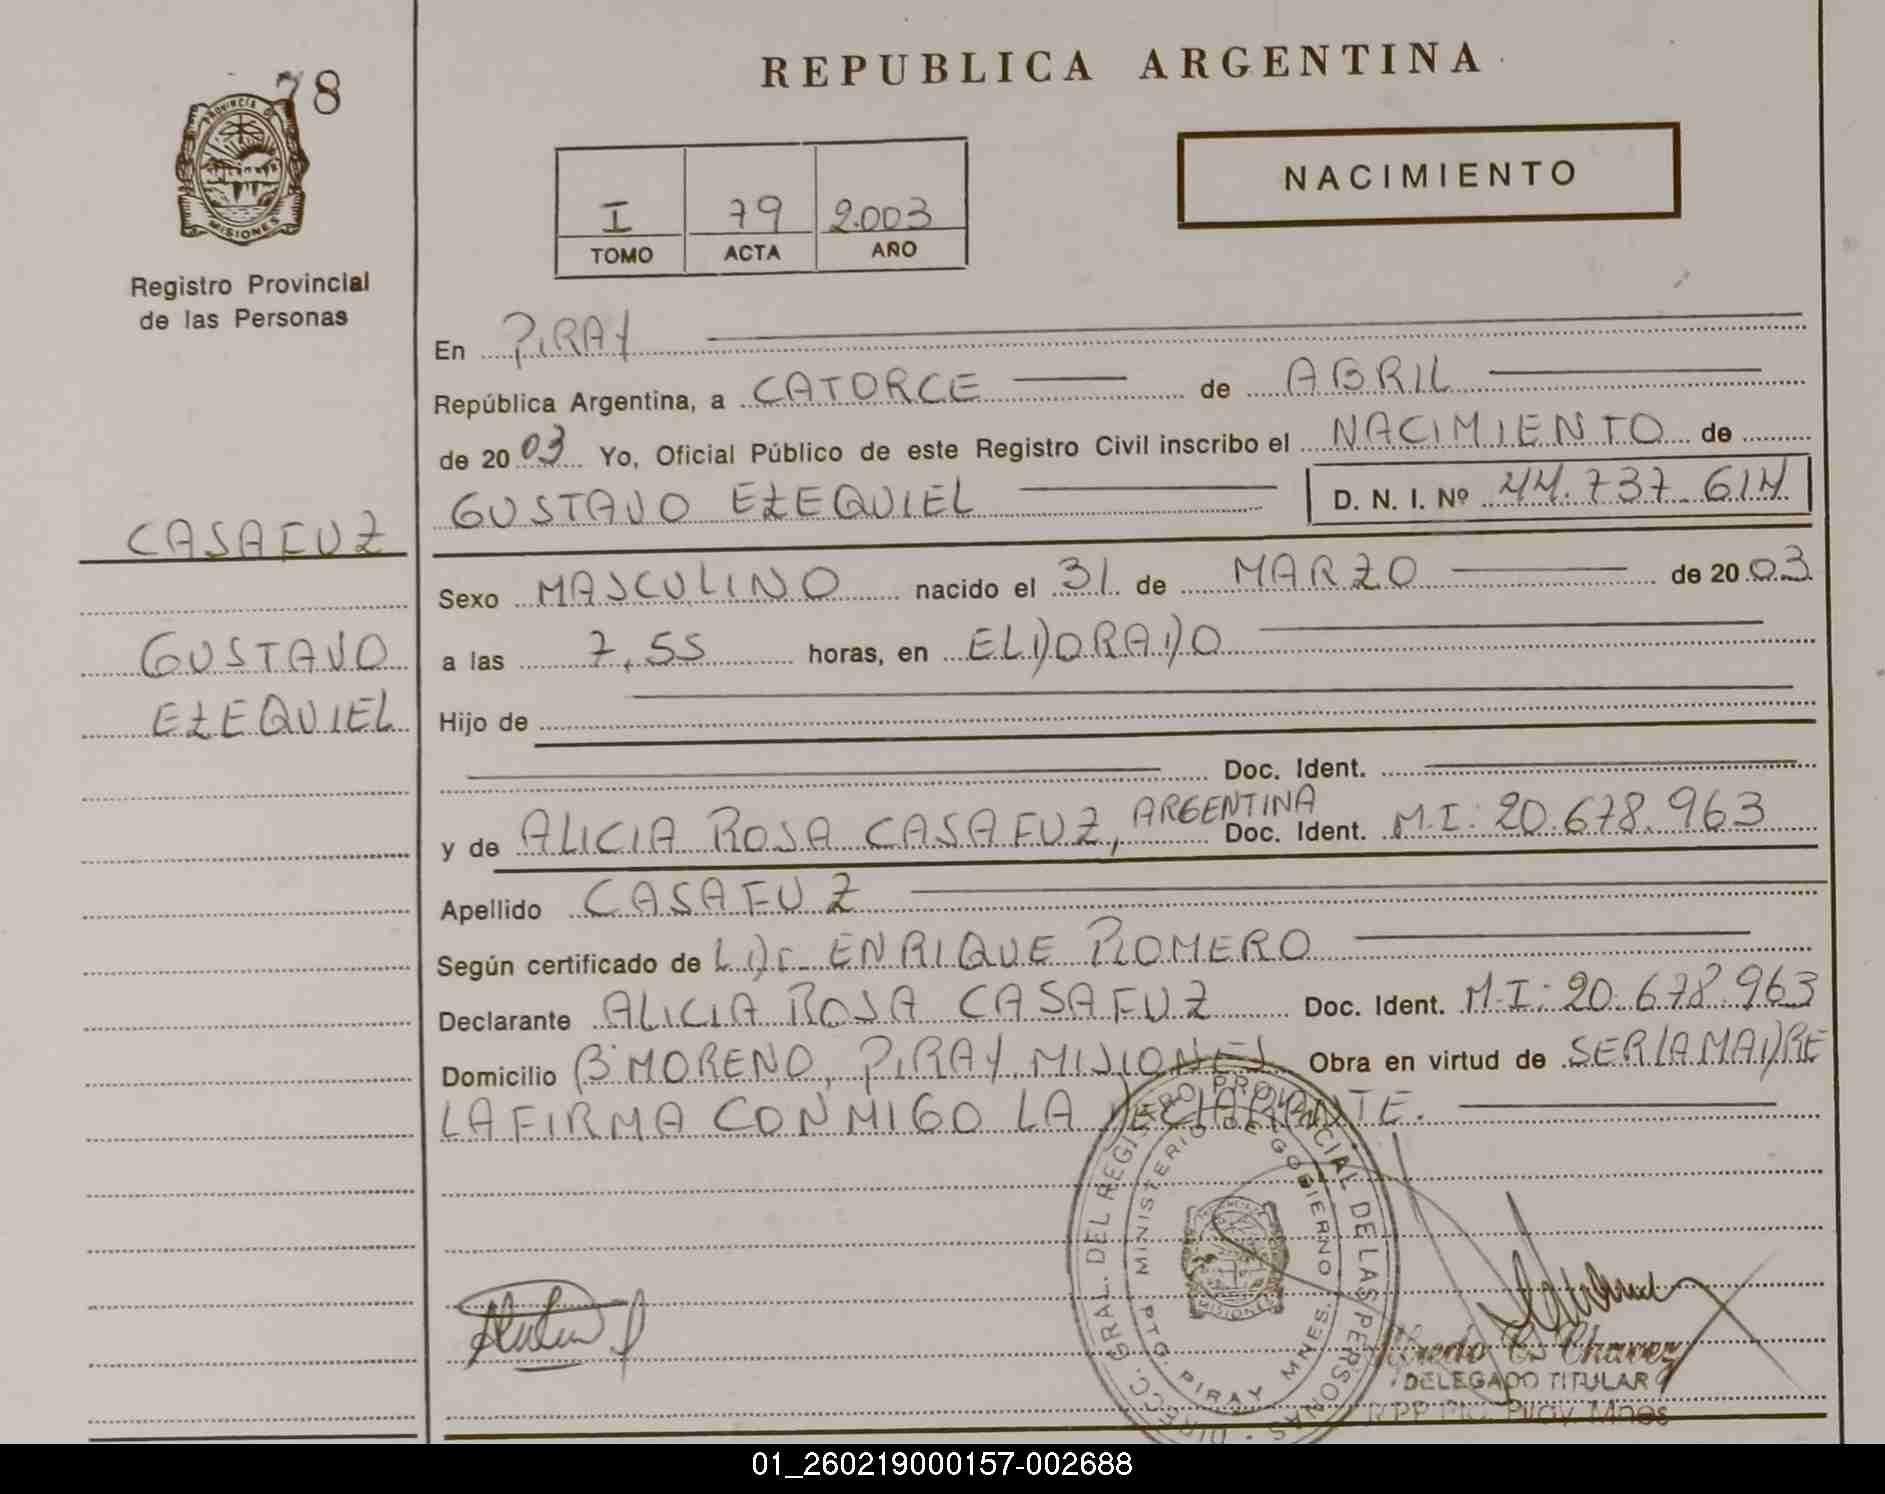 78
PROVINCIA DE
MISIONES
Registro Provincial
de las Personas
CASAFUZ
GUSTAVO
EZEQUIEL
REPUBLICA ARGENTINA
I 79 2.003
TOMO ACTA AÑO
NACIMIENTO
En PIRAY
República Argentina, a CATORCE de ABRIL
de 2003 Yo, Oficial Público de este Registro Civil inscribo el NACIMIENTO de
GUSTAVO EZEQUIEL D. N. I. Nº 44.737.614
Sexo MASCULINO nacido el 31 de MARZO de 2003
a las 7,55 horas, en ELDORADO
Hijo de
Doc. Ident.
y de ALICIA ROSA CASAFUZ, ARGENTINA Doc. Ident. M.I: 20.678.963
Apellido CASAFUZ
Según certificado de ENRIQUE ROMERO
Declarante ALICIA ROSA CASAFUZ Doc. Ident. M.I: 20.678.963
Domicilio Bº MORENO, PIRAY, MISIONES Obra en virtud de SER LA MADRE
LA FIRMA CONMIGO LA DECLARANTE.
DIRECC. GRAL. DEL REGISTRO PROVINCIAL DE LAS PERSONAS
MINISTERIO DE GOBIERNO
PTO. PIRAY MNES.
MISIONES
Alfredo C. Chavez
DELEGADO TITULAR
R.P.P. Pto. Piray Mnes
01_260219000157-002688